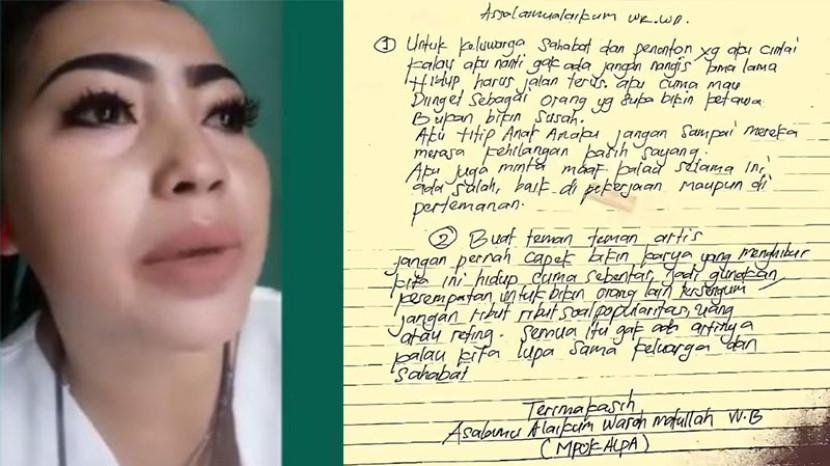 Assalamualaikum WR.WB.
① Untuk keluwarga sahabat dan penonton yg aku cintai
kalau aku nanti gak ada jangan nangis lama lama
Hidup harus jalan terus. aku cuma mau
Diinget sebagai orang yg suka bikin ketawa
Bukan bikin susah.
Aku titip Anak Anaku jangan sampai mereka
merasa kehilangan kasih sayang.
Aku juga minta maaf kalau selama ini,
ada salah, baik di pekerjaan maupun di
pertemanan.
② Buat teman teman artis
jangan pernah capek bikin karya yang menghibur
kita ini hidup cuma sebentar, jadi gunakan
kesempatan untuk bikin orang lain tersenyum
jangan ribut ribut soal popularitas, uang
atau reting. semua itu gak ada artinya
kalau kita lupa sama keluarga dan
sahabat
Terimakasih
Warahmatullah W.B
(MPOK ALPA)